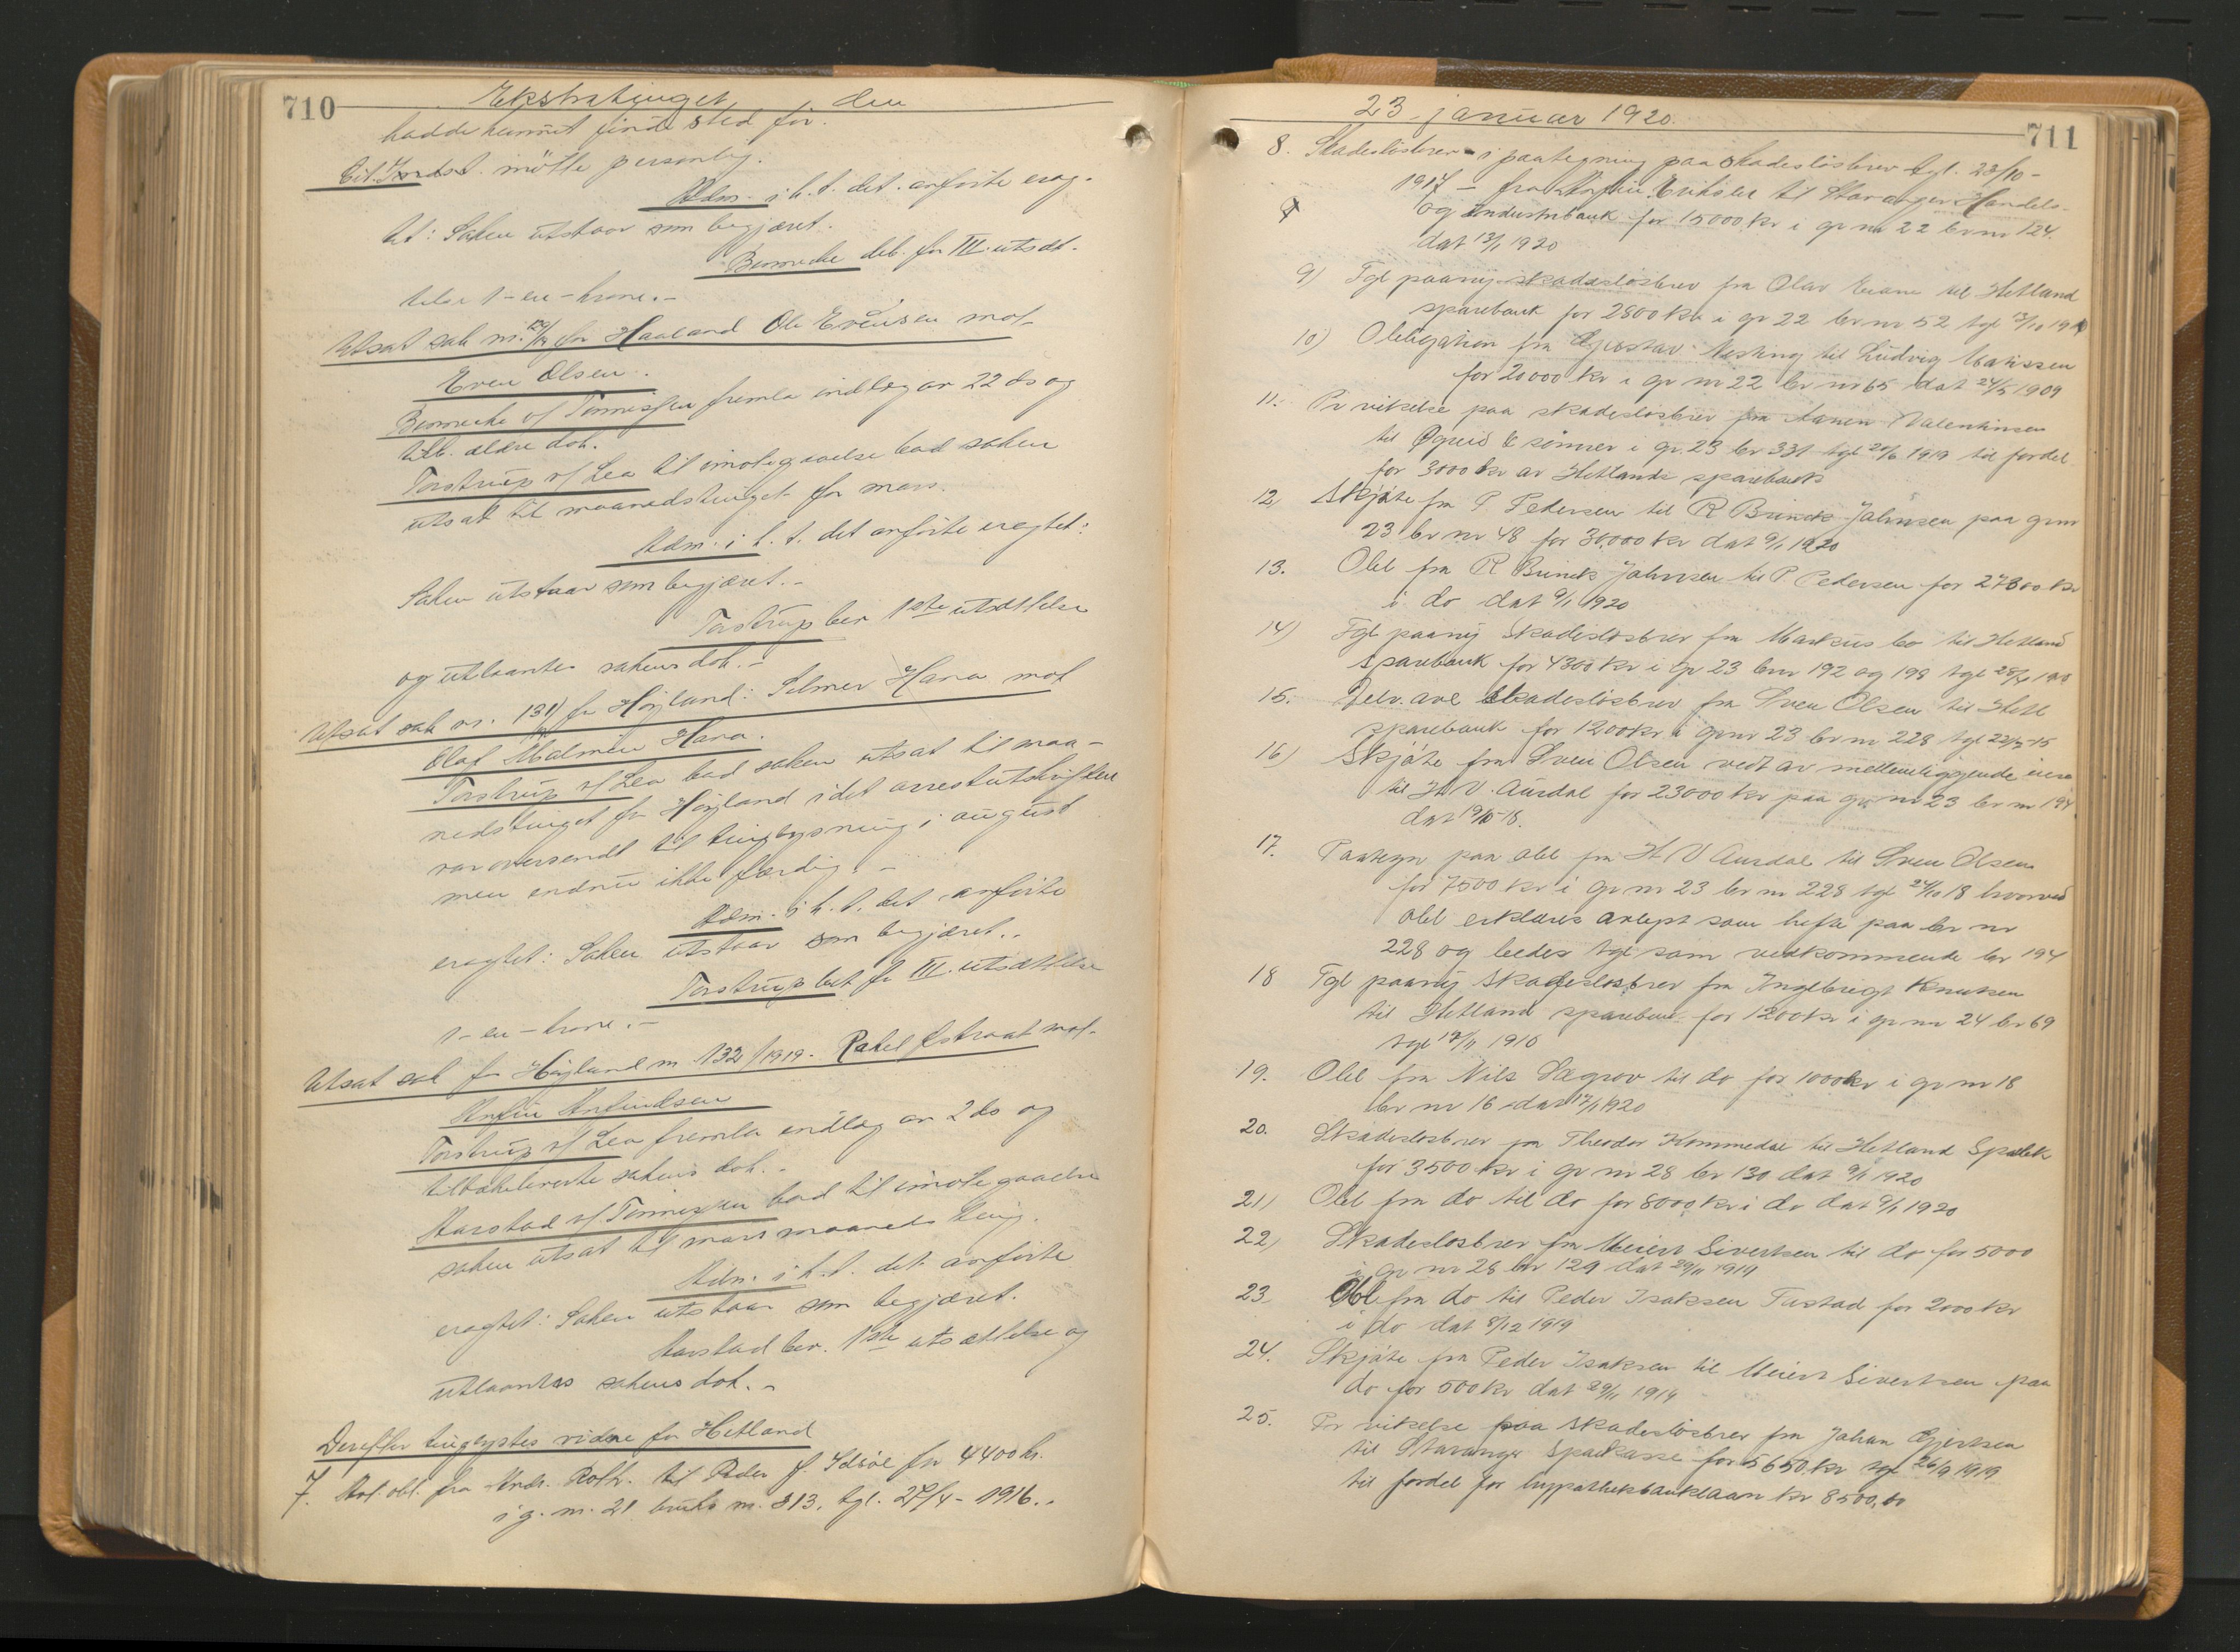 710
Ekstratinget den
hadde kunnet finde sted før.
Cit. Indst. mötte personlig.
Adm. i h. t. det. anförte erag-
tet: Saken utstaar som begjæret.
Benneche deb. for III. utsdt.
telse 1-en-krone.-
Utsat sak nr. 129/19 for Haaland Ole Evensen mot
Even Olsen.
Benneche v/ Tönnissen fremla indlæg av 22 ds og
tilb. ældre dok.
Torstrup v/ Lea til imötegaaelse bad saken
utsat til maanedstinget for mars.
Adm. i h. t. det anförte eragtet:
Saken utstaar som begjæret.-
Torstrup ber 1ste utsættelse
og utlaantes sakens dok.-
Utsat sak nr. 131/19 for Höyland: Selmer Hana mot
Olaf Malmin Hana.
Torstrup v/ Lea bad saken utsat til maa-
nedstinget for Höyland idet arrestutskriften
var oversendt til tinglysning i august
men endnu ikke færdig.-
Adm. i h. t. det anförte
eragtet: Saken utstaar som begjæret..
Torstrup bet. for III. utsættelse
1-en-krone.-
Utsat sak for Höyland nr 132/1919. Rakel Østraat mot.
Anfin Anfindsen
Torstrup v/ Lea fremla indlæg av 2 ds og
tilbakeleverte sakens dok..
Aarstad v/ Tönnissen bad til imötegaaelse
saken utsat til mars maaneds ting.
Adm. i h. t. det anförte
eragtet: Saken utstaar som begjæret.
Aarstad ber. 1ste utsættelse og
utlaantes sakens dok.-
Derefter tinglystes vidne for Hetland
7. Avl. obl. fra Andr. Roth. til Peder J. Idsöe for 4400 kr.
i g. nr. 21 bruks nr. 313, tgl. 27/4-1916..
23 januar 1920.
711
8. Skadeslösbrev i paategning paa skadeslösbrev tgl. 23/10-
1917 - fra Eriksen til Stavanger Handels-
og Industribank for 15000 kr i gr nr 22 br nr 124.
dat 13/1 1920
9) Tgl paany skadeslosbrev fra Olav Eiane til Hetland
sparebank for 2800 kr i gr 22 br nr 52 tgl
10) Obligation fra Gustav Nesting til Ludvig Matissen
for 20000 kr i gr nr 22 br nr 65 dat 24/5 1909
11. Pr vikelse paa skadeslosbrev fra Aanen Valentinsen
til Øgreid & sönner i gr. 23 br 331 tgl 20/6 1919 til fordel
for 3000 kr av Hetlands sparebank
12) Skjöte fra P Pedersen til R Brinck Johnsen paa grnr
23 br nr 48 for 30,000 kr dat 9/1 1920
13. Obl fra R Brinck Johnsen til P Pedersen for 27800 kr
i do dat 9/1 1920
14) Tgl paany Skadeslosbrev fra Markus Bo til Hetland
Sparebank for 4300 kr i gr 23 brnr 192 og 198 tgl
15. Delv. avl Skadeslosbrev fra Sven Olsen til Hetl
sparebank for 1200 kr i grnr 23 br nr 228 tgl
16) Skjöte fra Sven Olsen vedt av mellemliggende eiere
til H V. Aurdal for 23000 kr paa gr nr 23 br nr 194
dat 19/10-18.
17. Paategn paa obl fra H V Aurdal til Sven Olsen
for 7500 kr i gr nr 23 br nr 228 tgl 24/10 18 hvorved
obl erklæres avlyst som hefte paa br nr
228 og bedes tgl som vedkommende br 194
18 Tgl paany Skadeslosbrev fra Ingebrigt Knutsen
til Hetland sparebank for 1200 kr i gr nr 24 br 69
tgl 17/11 1910
19. Obl fra Nils Sægrov til do for 1000 kr i gr nr 18
br nr 16 dat 17/1 1920
20. Skadeslosbrev fra Theodor Kommedal til Hetland Spabk
for 3500 kr i gr nr 28 br 130 dat 9/1 1920
21) Obl fra do til do for 8000 kr i do dat 9/1 1920
22) Skadeslosbrev fra Meier Sivertsen til do for 5000
i gr nr 28 br 129 dat 29/11 1919
23. Obl fra do til Peder Isaksen Tustad for 2000 kr
i do dat 8/12 1919
24. Skjöte fra Peder Isaksen til Meier Sivertsen paa
do for 500 kr dat 29/11 1919
25. Pr vikelse paa Skadeslösbrev fra Johan Gjertsen
til Stavanger Sparkasse for 5650 kr tgl 26/9 1919
til fordel for hypothekbanklaan kr 8500,00